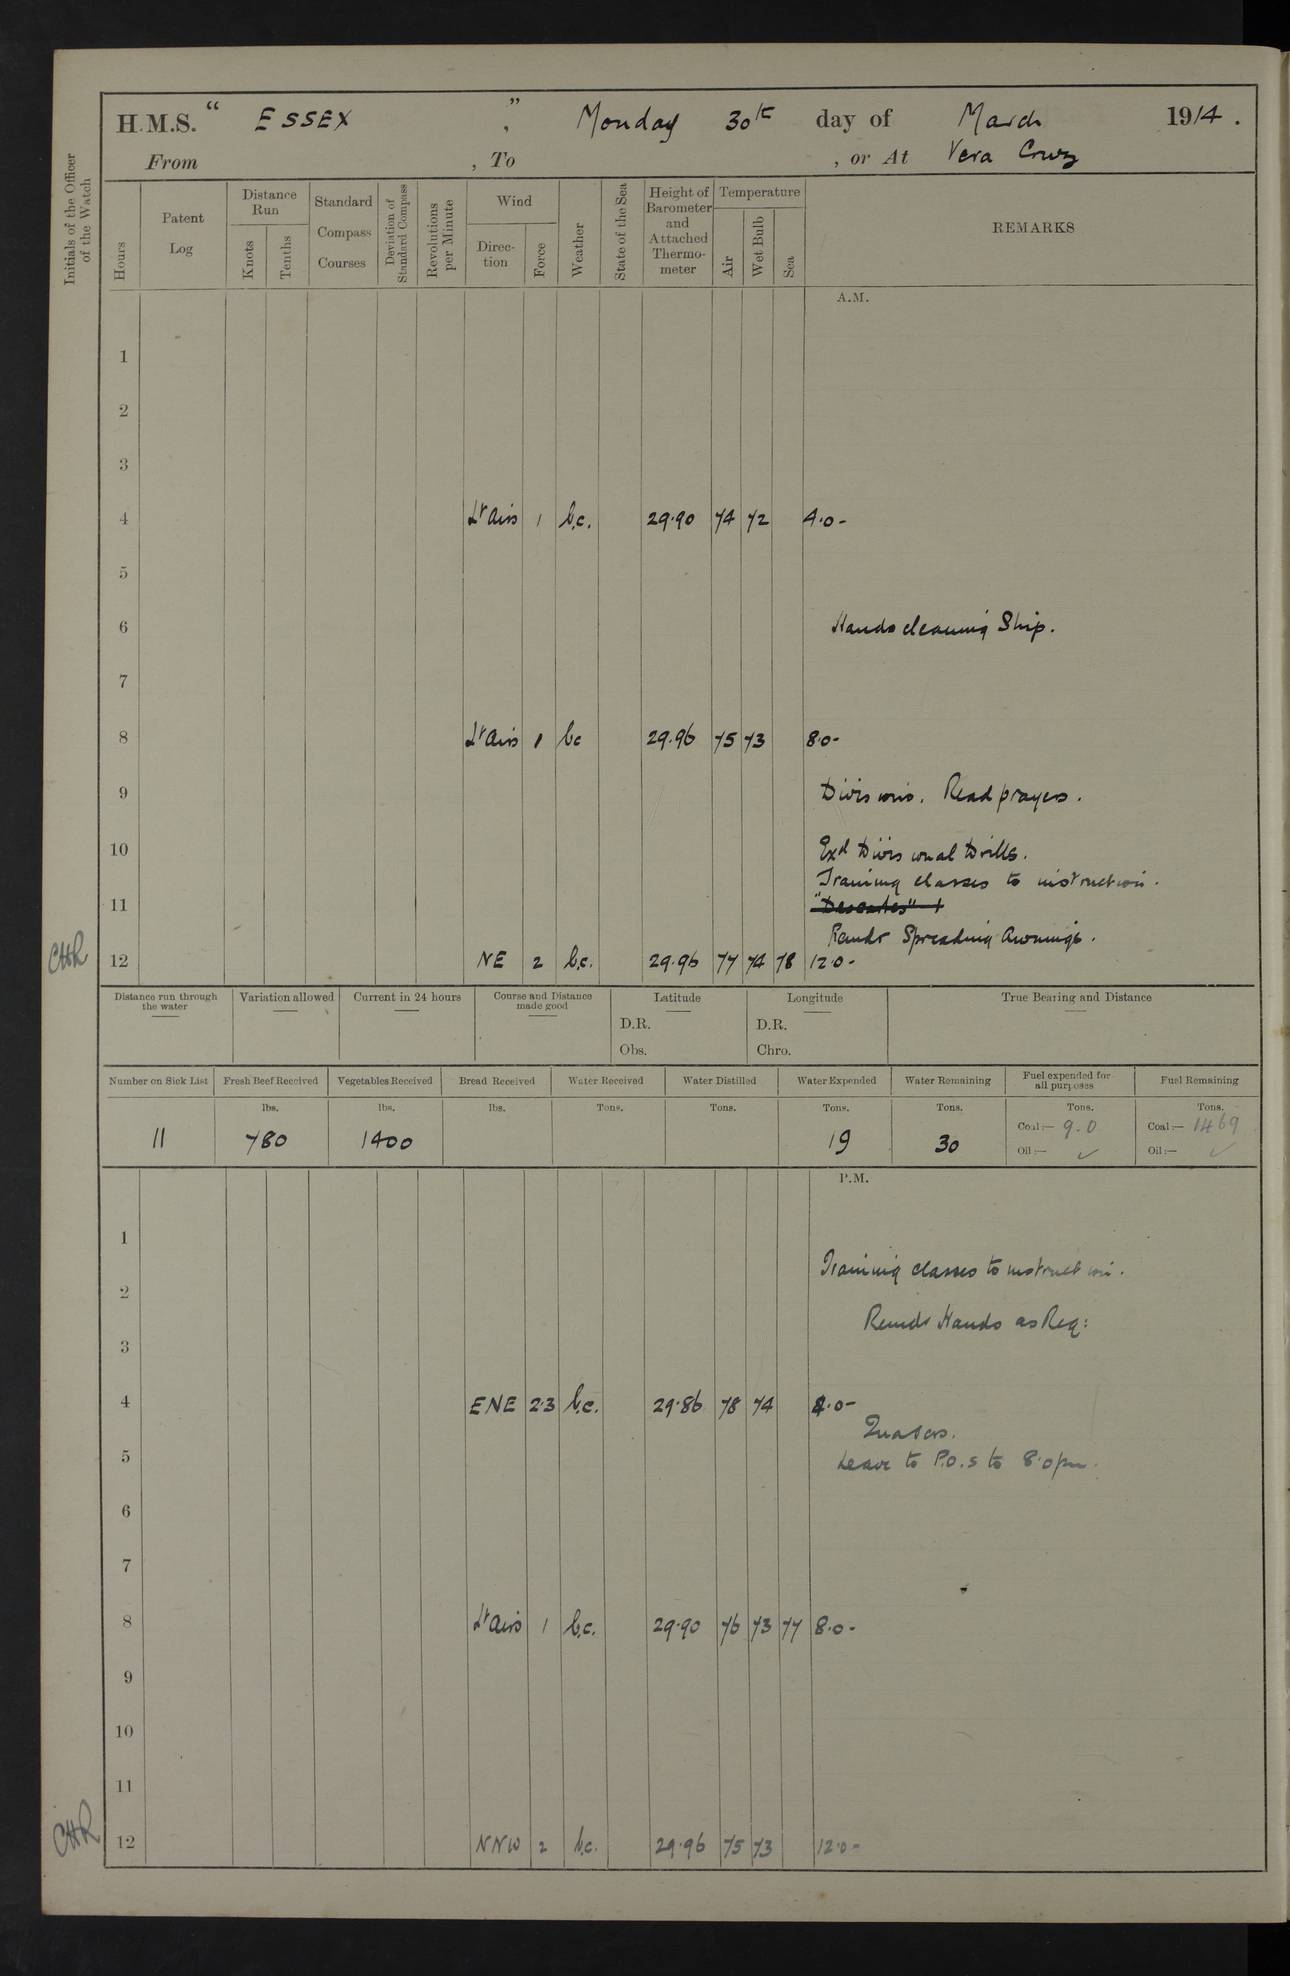 H.M.S. “ ESSEX ” , Monday 30th day of March 1914 .
From , To , or At Vera Cruz
Initials of the Officer of the Watch
Hours
Patent Log
Distance Run
Knots
Tenths
Standard Compass Courses
Deviation of Standard Compass
Revolutions per Minute
Wind
Direc- tion
Force
Weather
State of the Sea
Height of Barometer and Attached Thermo- meter
Temperature
Air
Wet Bulb
Sea
REMARKS
A.M.
1
2
3
4 Lt airs 1 b.c. 29.90 74 72 4.0-
5
6 Hands cleaning Ship.
7
8 Lt airs 1 bc 29.96 75 73 8.0-
9 Divisions. Read prayers.
10 Exd Divisional Drills.
Training classes to instruction.
11 "Descartes"
Remdr Spreading Awnings.
CHR 12 NE 2 b.c. 29.96 77 74 78 12.0-
Distance run through the water
Variation allowed
Current in 24 hours
Course and Distance made good
Latitude
D.R.
Obs.
Longitude
D.R.
Chro.
True Bearing and Distance
Number on Sick List
Fresh Beef Received
Vegetables Received
Bread Received
Water Received
Water Distilled
Water Expended
Water Remaining
Fuel expended for all purposes
Fuel Remaining
lbs. lbs. lbs. Tons. Tons. Tons. Tons. Tons. Tons.
11 780 1400 19 30 Coal:— 9.0 Coal:— 1469
Oil:— ✓ Oil:— ✓
P.M.
1
Training classes to instruction.
2
Remdr Hands as Req:
3
4 ENE 2.3 b.c. 29.86 78 74 4.0-
Quarters.
5 Leave to P.O.s to 8.0pm.
6
7
8 Lt airs 1 b.c. 29.90 76 73 77 8.0-
9
10
11
CHR 12 NNW 2 b.c. 29.96 75 73 12.0-